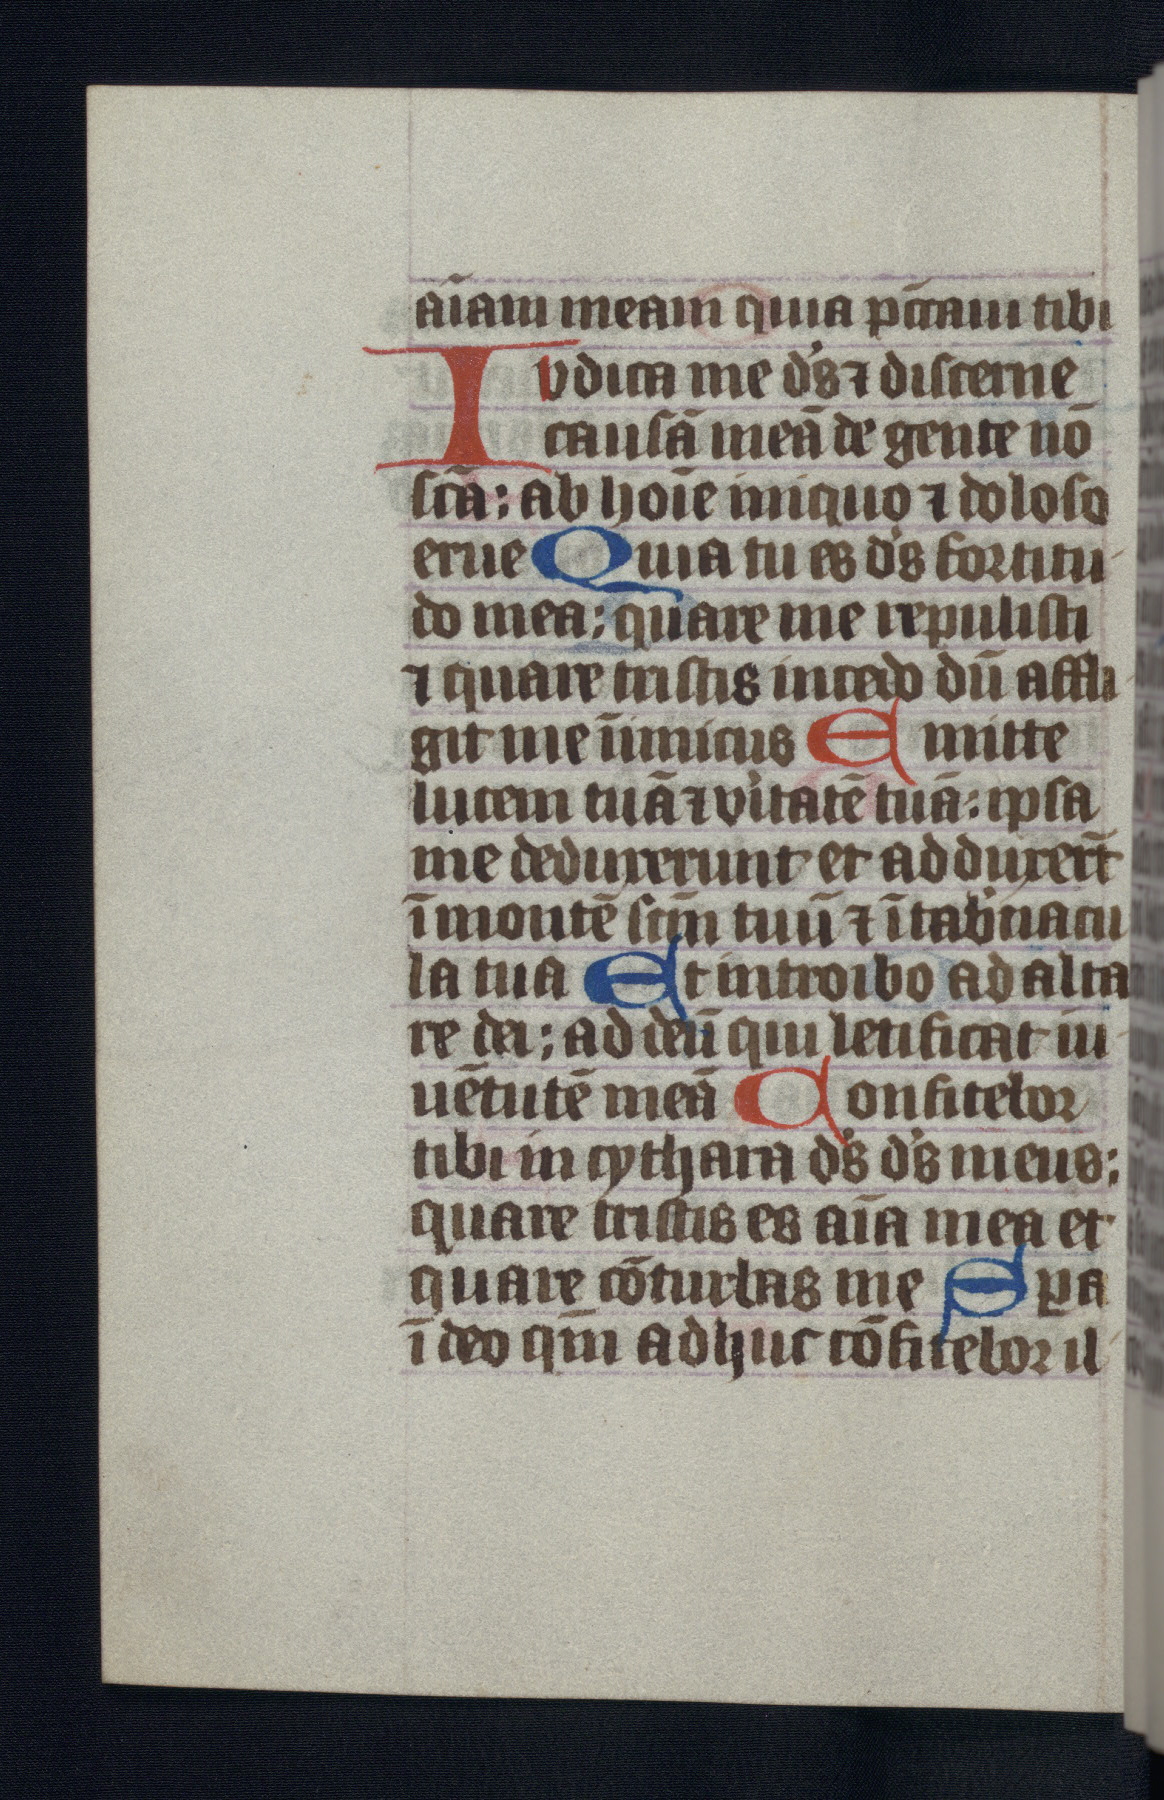 aīam meam quia pc̄caui tibi
Iudica me ds̄ ⁊ discerne
causā meā de gente nō
sc̄ā: ab hoīe iniquo ⁊ doloso
erue Quia tu es ds̄ fortitu
do mea: quare me repulisti
⁊ quare tristis incedo dū affli
git me īimicus Emitte
lucem tuā ⁊ v̓itatē tuā: ipsa
me deduxerunt et adduxert̄
ī montē sc̄m tuū ⁊ ī tab̓nacu
la tua Et introibo ad alta
re dei: ad deū qui letificat iu
uētutē meā Confitebor
tibi in cythara ds̄ ds̄ meus:
quare tristis es aīa mea et
quare cōturbas me Spa
ī deo qm̄ adhuc cōfitebor il